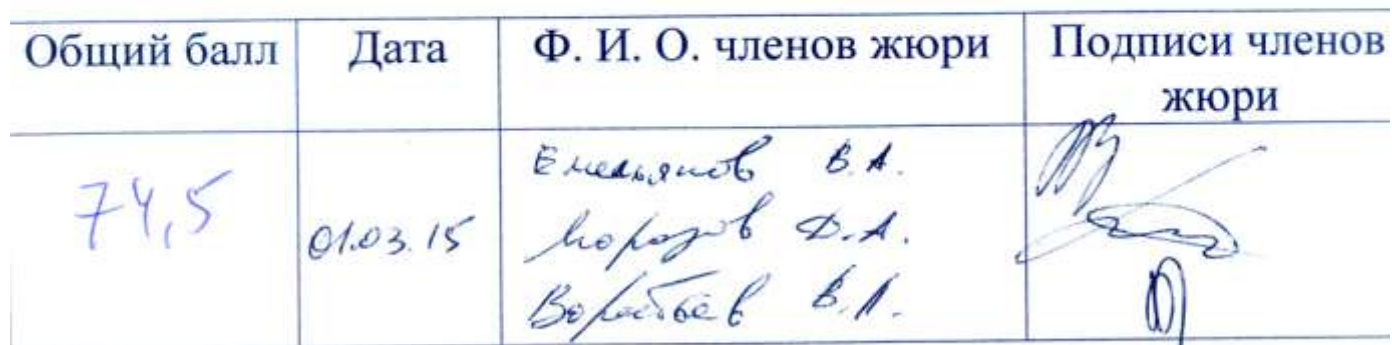 Общий балл Дата Ф. И. О. членов жюри Подписи членов
жюри
74,5 01.03.15 Емельянов В.А.
Морозов Д.А.
Воробьев В.А.